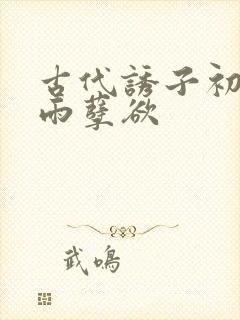 古代誘子初
雨孽欲
武鳴